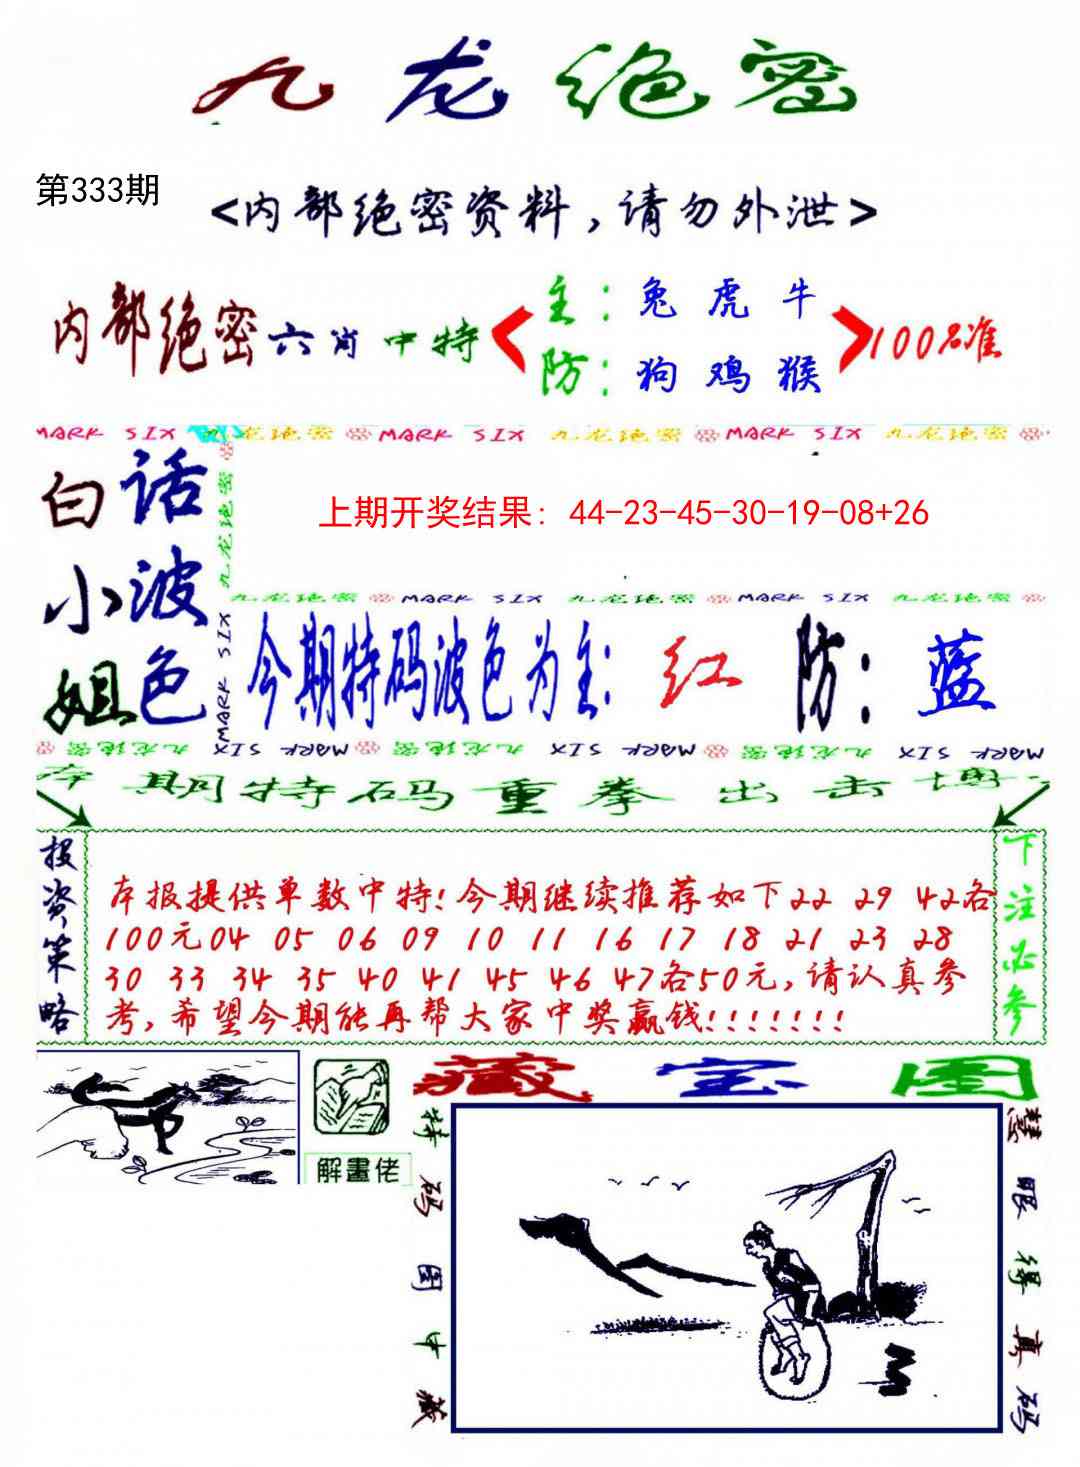 九龙绝密
第333期
<内部绝密资料,请勿外泄>
内部绝密六肖中特
主:兔虎牛
防:狗鸡猴
100%准
MARK SIX 九龙绝密 MARK SIX 九龙绝密 MARK SIX 九龙绝密
白话小波姐色
九龙绝密
MARK SIX
上期开奖结果: 44-23-45-30-19-08+26
九龙绝密 MARK SIX 九龙绝密 MARK SIX 九龙绝密
今期特码波色为主: 红 防: 蓝
九龙绝密 MARK SIX 九龙绝密 MARK SIX 九龙绝密 MARK SIX
本期特码重拳出击博
投资策略
本报提供单数中特!今期继续推荐如下22 29 42各
100元04 05 06 09 10 11 16 17 18 21 23 28
30 33 34 35 40 41 45 46 47各50元,请认真参
考,希望今期能再帮大家中奖赢钱!!!!!!!
下注必参
解畫佬
藏宝图
特码图中藏
慧眼得真码